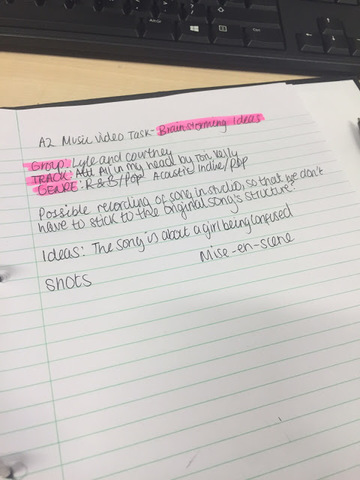 A2 Music Video Task - Brainstorming Ideas
Group: Lyle and Courtney
TRACK: All in my head by Tori Kelly
GENRE: R&B/Pop Acoustic Indie/Pop
Possible recording of song in studio, so that we don't
have to stick to the original song's structure?
Ideas: The song is about a girl being confused
Mise-en-scene
shots